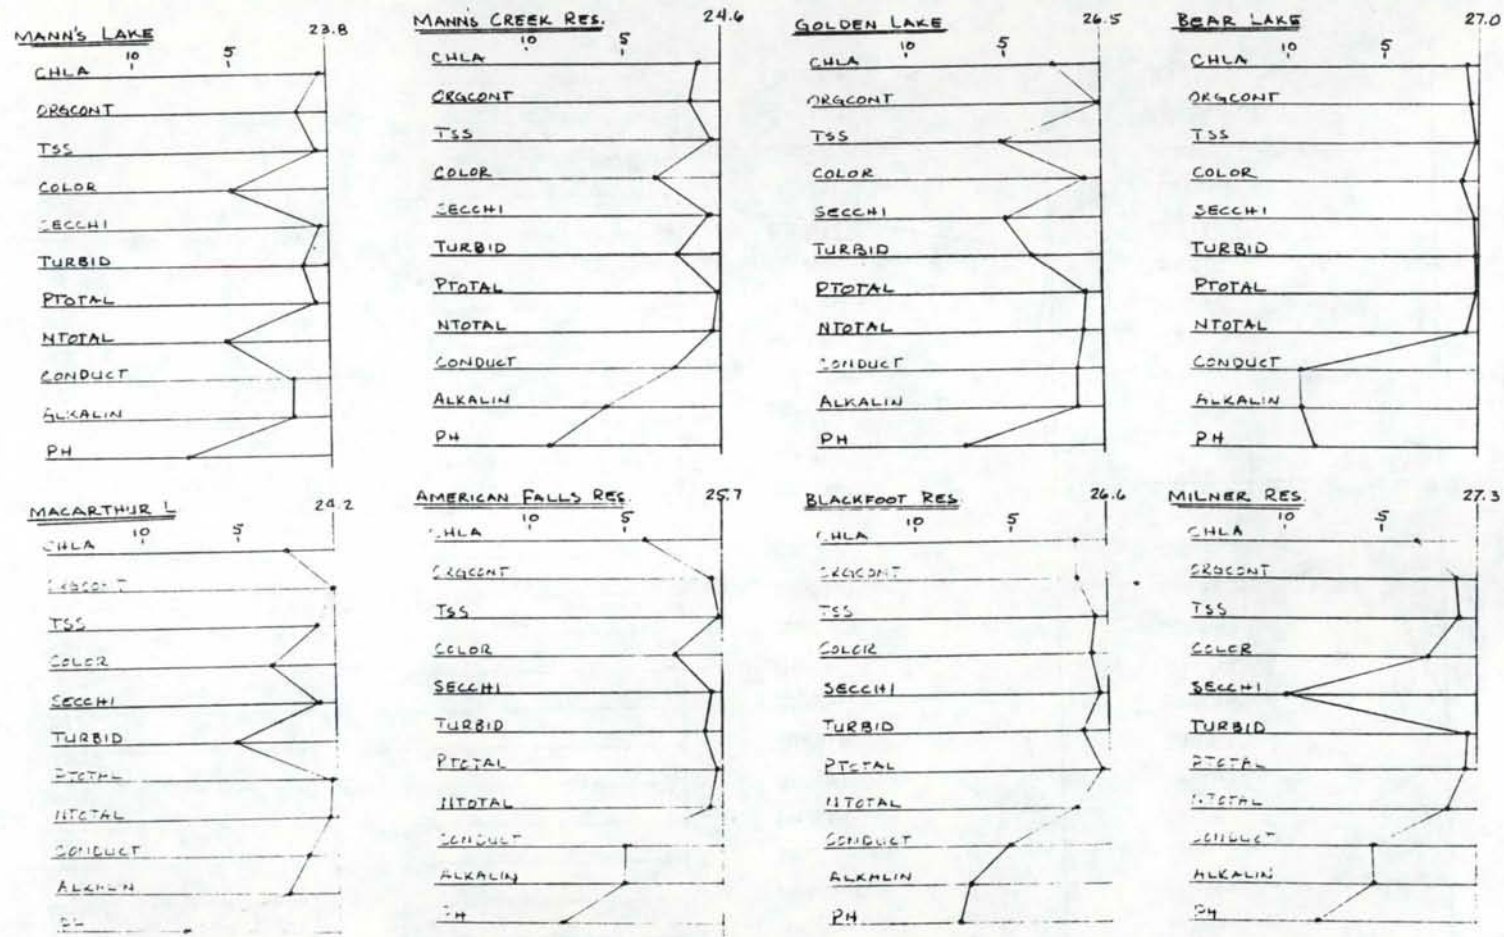 MANN'S LAKE 23.8
10 5
CHLA
ORGCONT
TSS
COLOR
SECCHI
TURBID
PTOTAL
NTOTAL
CONDUCT
ALKALIN
PH
MANN'S CREEK RES. 24.6
10 5
CHLA
ORGCONT
TSS
COLOR
SECCHI
TURBID
PTOTAL
NTOTAL
CONDUCT
ALKALIN
PH
GOLDEN LAKE 26.5
10 5
CHLA
ORGCONT
TSS
COLOR
SECCHI
TURBID
PTOTAL
NTOTAL
CONDUCT
ALKALIN
PH
BEAR LAKE 27.0
10 5
CHLA
ORGCONT
TSS
COLOR
SECCHI
TURBID
PTOTAL
NTOTAL
CONDUCT
ALKALIN
PH
MACARTHUR L 24.2
10 5
CHLA
ORGCONT
TSS
COLOR
SECCHI
TURBID
PTOTAL
NTOTAL
CONDUCT
ALKALIN
PH
AMERICAN FALLS RES. 25.7
10 5
CHLA
ORGCONT
TSS
COLOR
SECCHI
TURBID
PTOTAL
NTOTAL
CONDUCT
ALKALIN
PH
BLACKFOOT RES 26.6
10 5
CHLA
ORGCONT
TSS
COLOR
SECCHI
TURBID
PTOTAL
NTOTAL
CONDUCT
ALKALIN
PH
MILNER RES. 27.3
10 5
CHLA
ORGCONT
TSS
COLOR
SECCHI
TURBID
PTOTAL
NTOTAL
CONDUCT
ALKALIN
PH